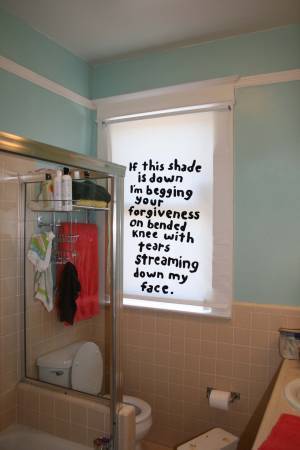 If this shade
is down
I'm begging
your
forgiveness
on bended
knee with
tears
streaming
down my
face.